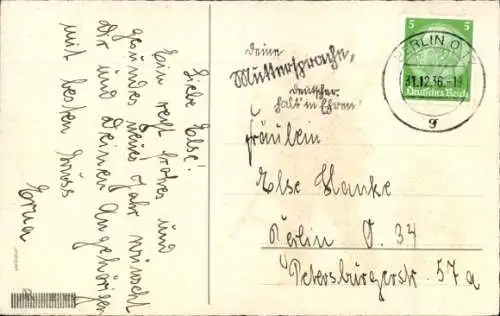 Liebe Else!
Ein recht frohes und
gesundes neues Jahr wünscht
Dir und Deinen Angehörigen
mit besten Gruss
Erna
deine
Muttersprache,
deutscher
halt in Ehren!
5 5
Deutsches Reich
BERLIN O
31.12.36.-
g
Fräulein
Else Hanke
Berlin O. 34
Petersburgerstr. 57a